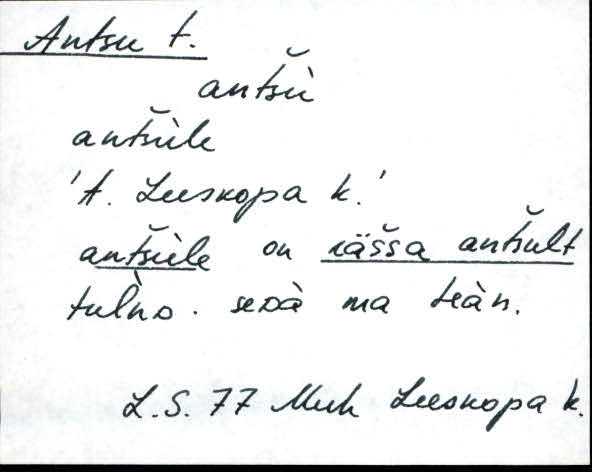 Antsu t.
antšù
antšùle
'A. Leeskopa k.'
antšùle on iäšša antšult
tulǹo. seda ma teàn.
L.S. 77 Muh Leeskopa k.